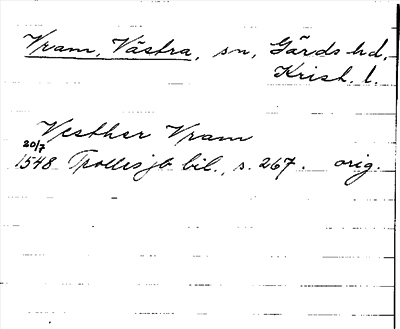 Vram, Västra, sn, Gärds hd,
Krist. l.
Vesther Vram
20/7
1548 Trolles jb bil., s. 267. orig.